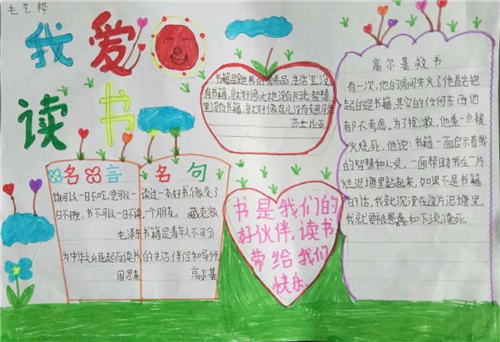 毛艺桦
我爱
读书
书籍是
生活里没
有书籍,就好像大地没有阳光,智慧
里没有书籍,就好像鸟儿没有翅膀
莎士比亚
高尔基救书
有一次,他的房间失火了他首先抱
起的是书籍,其他的任何东西他
都不考虑。为了抢救,他差一点被
火烧死,他说:书籍一面启示着我
的智慧和心灵,一面帮助我在一片
烂泥塘里站起来,如果不是书籍
的话,我就沉没在这片泥塘里,
我就
名言
饭可以一日不吃,觉可以一
日不睡,书不可以一日不读
毛泽东
为中华之崛起而读书
周恩来
名句
读过一本好书,像交了
个朋友。 臧克家
书籍是青年人不可分
的生活伴侣和导师
高尔基
书是我们的
好伙伴,读书
带给我们
快乐。